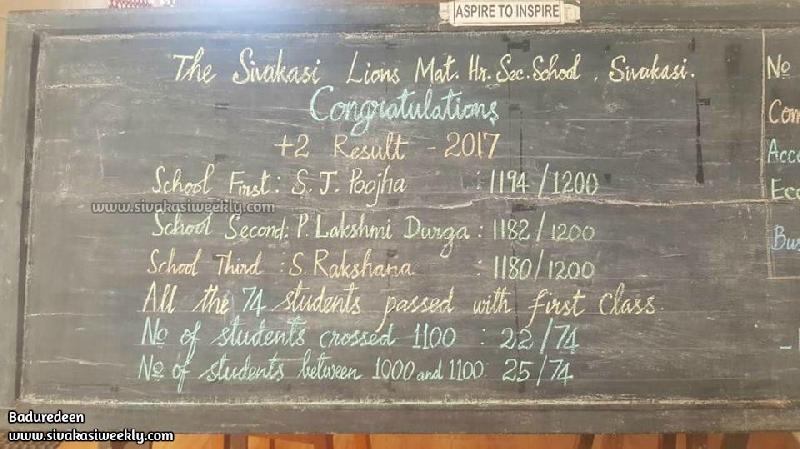 ASPIRE TO INSPIRE
The Sivakasi Lions Mat. Hr. Sec. School, Sivakasi.
Congratulations
+2 Result - 2017
School First: S. J. Poojha : 1194/1200
www.sivakasiweekly.com
School Second: P. Lakshmi Durga : 1182/1200
School Third : S. Rakshana : 1180/1200
All the 74 students passed with first class.
No of students crossed 1100 : 22/74
No of students between 1000 and 1100 25/74
No
Com
Acco
Eco
Bus
Baduredeen
www.sivakasiweekly.com